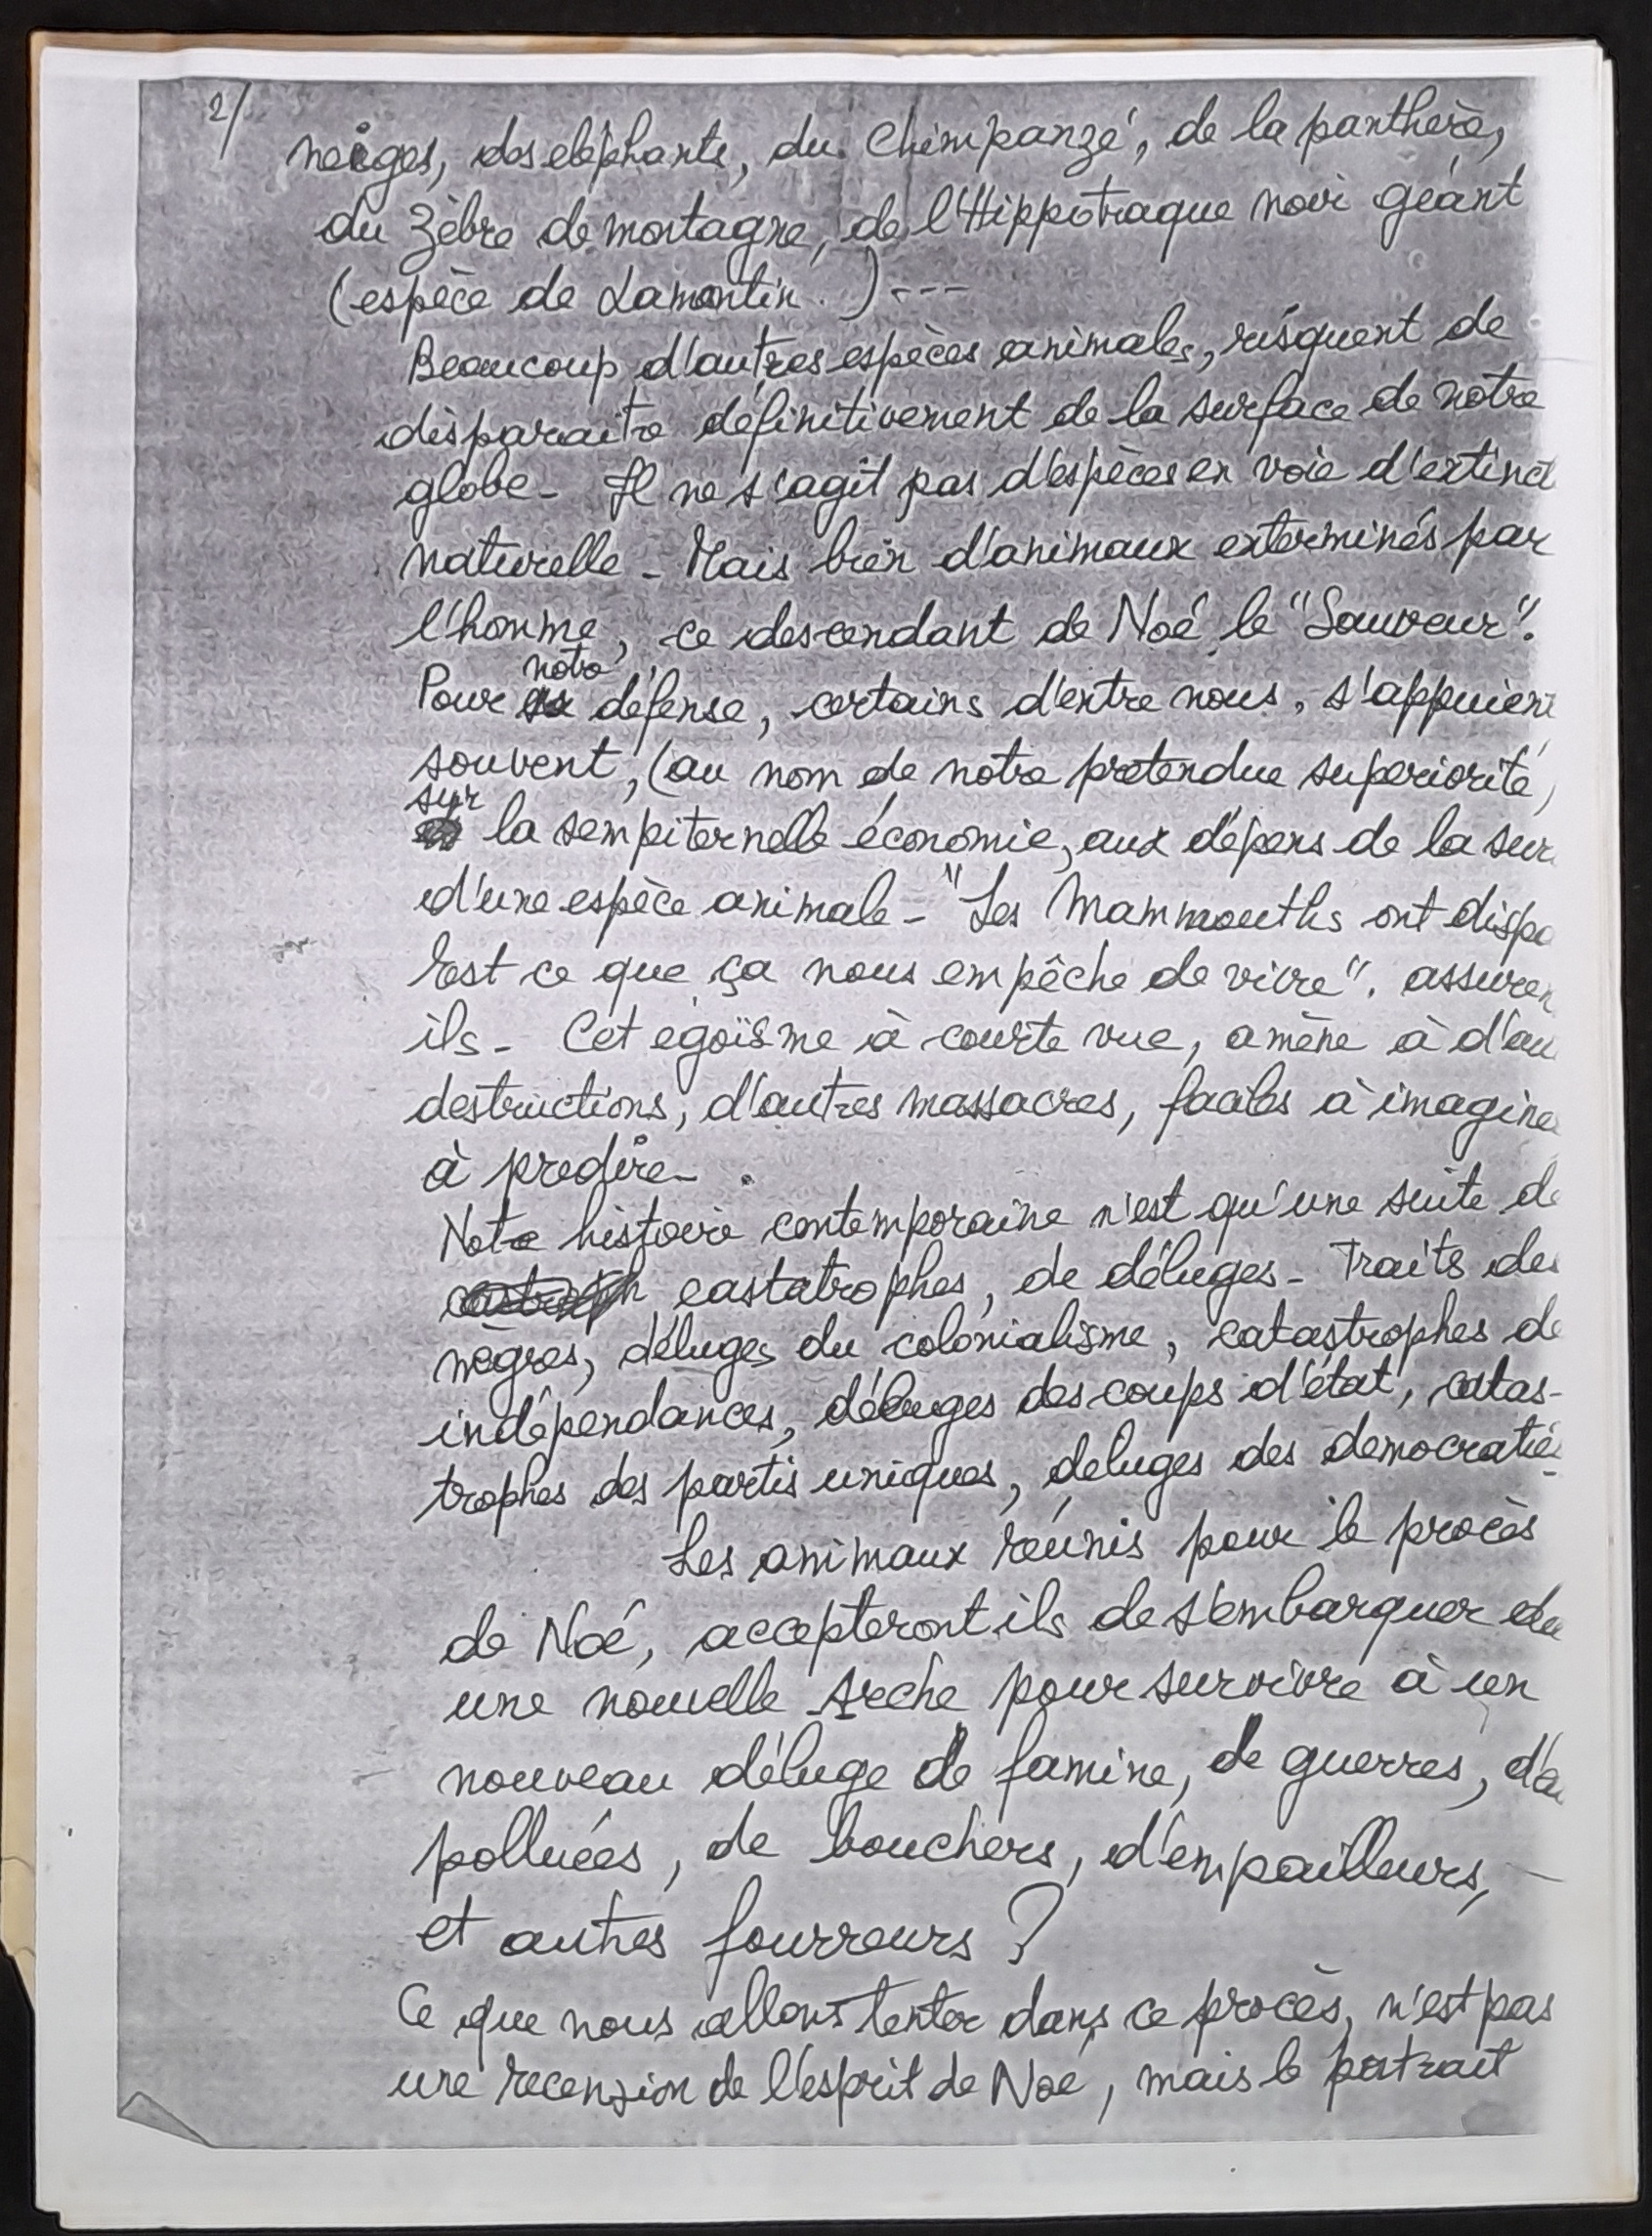 2/
neiges, des elephants, du Chimpanzé, de la panthère,
du Zèbre de montagne, de l'Hippotrague noir géant
(espèce de Lamantin.) ---
Beaucoup d'autres espèces animales, risquent de
disparaitre définitivement de la surface de notre
globe - Il ne s'agit pas d'espèces en voie d'extinct
naturelle - Mais bien d'animaux exterminés par
l'homme, ce descendant de Noé le "Sauveur".
notre
Pour défense, certains d'entre nous, s'appuient
souvent, (au nom de notre prétendue superiorité)
sur
la sempiternelle économie, aux dépens de la sur
d'une espèce animale - "Les Mammouths ont dispa
Est ce que ça nous empêche de vivre". assuren
ils - Cet egoïsme à courte vue, amène à d'au
destructions, d'autres massacres, faciles à imagine
à predire - .
Notre histoire contemporaine n'est qu'une suite de
castatrophes, de déluges - Traits des
nègres, déluges du colonialisme, catastrophes de
indépendances, déluges des coups d'état, catas-
trophes des partis uniques, deluges des democraties
Les animaux réunis pour le procès
de Noé, accepteront ils de s'embarquer da
une nouvelle Arche pour survivre à un
nouveau déluge de famine, de guerres, d'a
polluées, de bouchers, d'empailleurs,
et autres fourreurs ?
Ce que nous allons tenter dans ce procès, n'est pas
une recension de l'esprit de Noé, mais le portrait